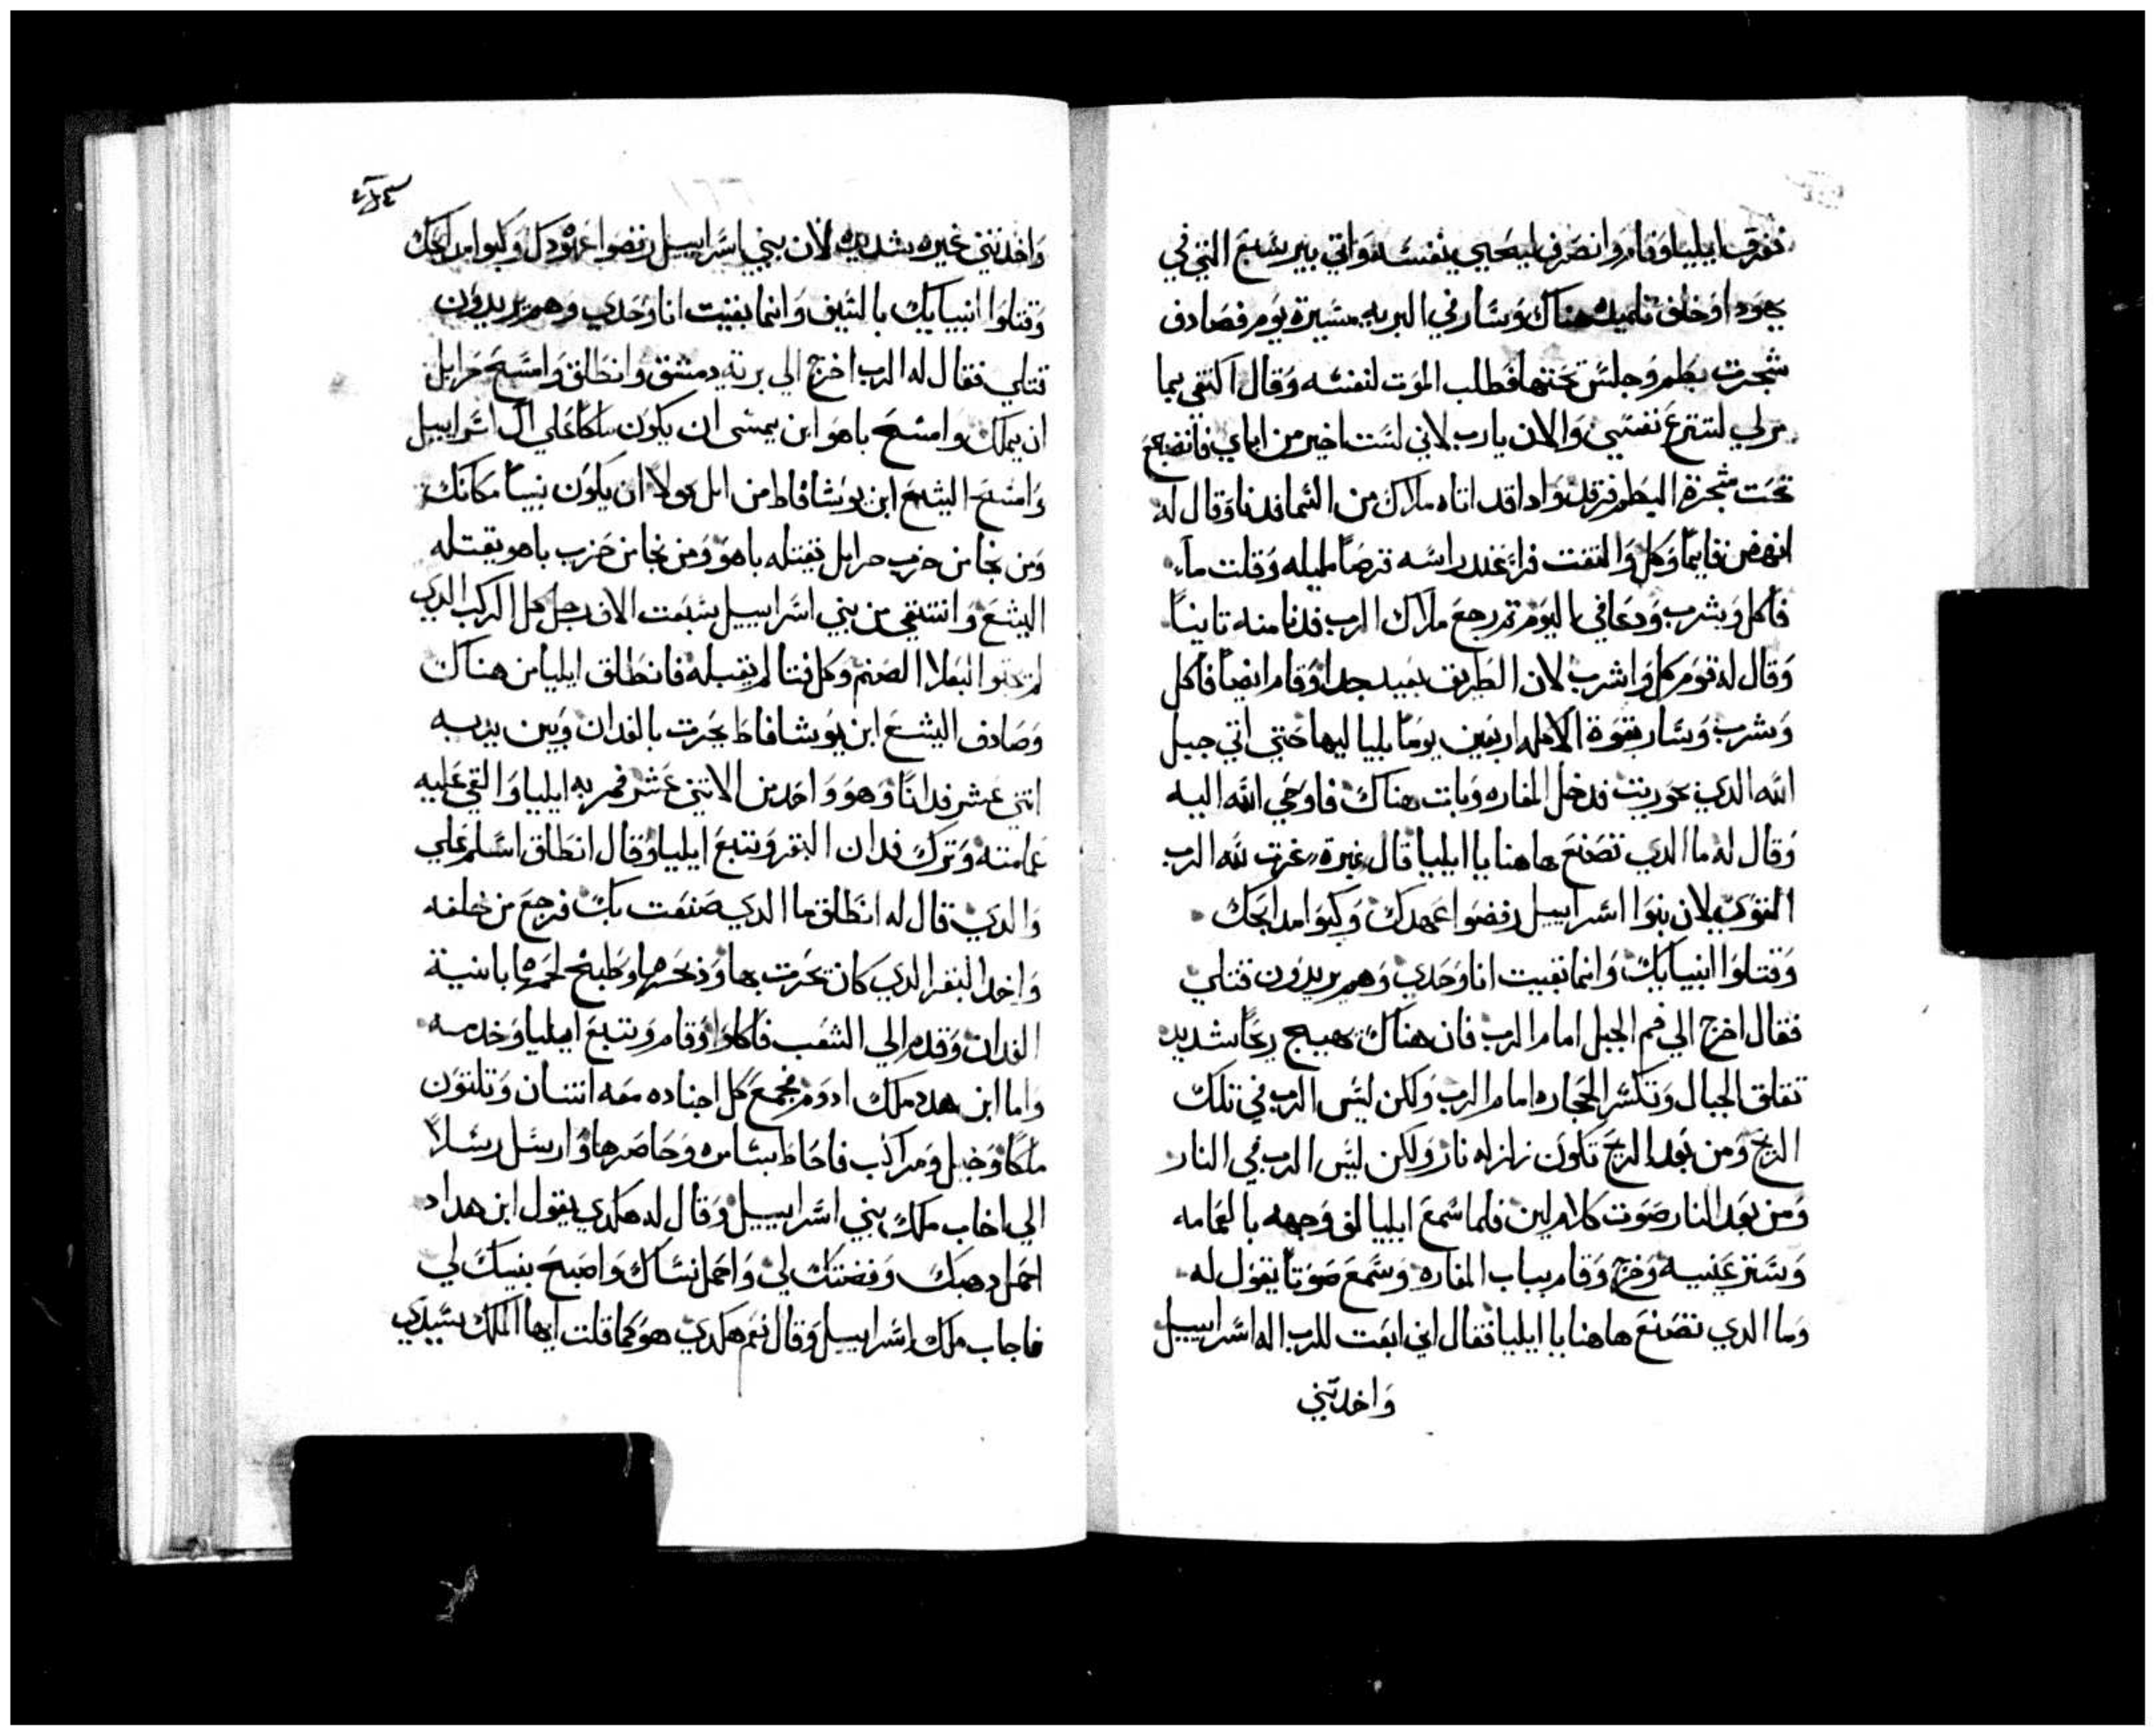 ففرق ايليا وقام وانصرف ليحيي بنفسه واتي بير سبع التي في
يهودا وخلف تلميده هناك وسار في البريه مسيرة يوم فصادف
شجرت بطم وجلس تحتها فطلب الموت لنفسه وقال اكتفي بما
مر لي لتنزع نفسي والان يارب لاني لست اخير من اباي فانضجع
تحت شجرة البطم فرقد وادا قد اتاه ملاك من السما فدنا وقال له
انهض قايمًا وكل والتفت فراء عند راسه قرصًا مليله وقلت ماء
فاكل وشرب ودعا في اليوم تم رجع ملاك الرب فدنا منه تانيتًا
وقال له قوم كل واشرب لان الطريق بعيد جدا وقام ايضًا فاكل
وشرب وسار بقوة الاكله اربعين يومًا بلياليها حتي اتي جبل
الله الدي بحوريت فدخل المغاره وبات هناك فاوحي الله اليه
وقال له ما الدي تصنع هاهنا يا ايليا قال غيرة غرت لله الرب
القوي لان بنوا اسراييل رفضوا عهدك وكبوا مدابحك
وقتلوا انبيايك وانما بقيت انا وحدي وهم يريدون قتلي
فقال اخرج الي فم الجبل امام الرب فان هناك تهيج ريحًا شديد
تقلق الجبال وتكسر الحجاره امام الرب ولكن ليس الرب في تلك
الريح ومن بعد الريح تكون زلزله نار ولكن ليس الرب في النار
ومن بعد النار صوت كلام لين فلما سمع ايليا لف وجهه بالعمامه
وستر عنيه وخرج وقام بباب المغاره وسمع صوتًا يقول له
وما الدي تصنع هاهنا يا ايليا فقال اني ابقت للرب اله اسراييل
واخدتني
واخدتني غيره شديده لان بني اسراييل رفضوا عهودك وكبوا مدابحك
وقتلوا انبيايك بالسيف وانما بقيت انا وحدي وهم يريدون
قتلي فقال له الرب اخرج الي برية دمشق وانطلق وامسح حزايل
ان يملك وامسح ياهو ابن يمشى ان يكون ملكًا علي ال اسراييل
وامسح اليشع ابن يوشافاط من ابل مولا ان يكون نبيًا مكانك
ومن نجا من حزب حزايل يقتله ياهو ومن نجا من حزب ياهو يقتله
اليشع وانتقي من بني اسراييل سبعت الاف رجل كل الركب الدي
لم يجتوا لبعلا الصنم وكل فتا لم يقبله فانطلق ايليا من هناك
وصادف اليشع ابن يوشافاط يحرت بالفدان وبين يديه
اتني عشر فدانًا وهو واحد من الاتني عشر فمر به ايليا والقي عليه
عمامته وترك فدان البقر وتبع ايليا وقال انطلق اسلم علي
والدي قال له انطلق ما الدي صنعت بك فرجع من خلفه
واخد البقر الدي كان يحرت بها ودبحها وطبخ لحمها بانية
الفدان وقدم الي الشعب فاكلوا وقام وتبع ايليا وخدمه
واما ابن هدد ملك ادوم فجمع كل اجناده معه اتنان وتلتون
ملكًا وخيل ومراكب فاحاط بسامره وحاصرها وارسل رسلًا
الي اخاب ملك بني اسراييل وقال له هكدي يقول ابن هداد
احمل دهبك وفضتك لي واحمل نساك واصبح بنيك لي
فاجاب ملك اسراييل وقال نعم هكدي هو كما قلت ايها الملك سيدي